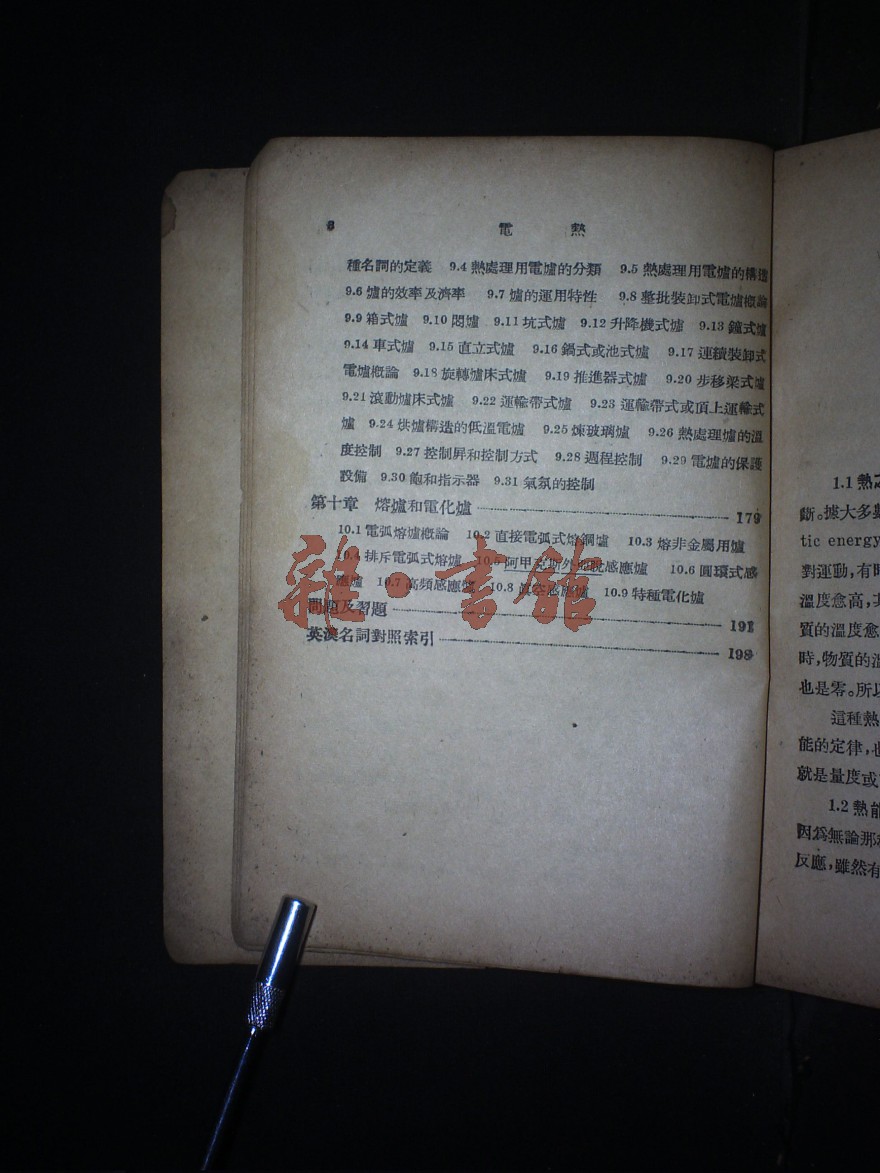 8 電 熱
種名詞的定義 9.4 熱處理用電爐的分類 9.5 熱處理用電爐的構造
9.6 爐的效率及濟率 9.7 爐的運用特性 9.8 整批裝卸式電爐槪論
9.9 箱式爐 9.10 悶爐 9.11 坑式爐 9.12 升降機式爐 9.13 鐘式爐
9.14 車式爐 9.15 直立式爐 9.16 鍋式或池式爐 9.17 連續裝卸式
電爐槪論 9.18 旋轉爐床式爐 9.19 推進器式爐 9.20 步移梁式爐
9.21 滾動爐床式爐 9.22 運輸帶式爐 9.23 運輸帶式或頂上運輸式
爐 9.24 烘爐構造的低溫電爐 9.25 煉玻璃爐 9.26 熱處理爐的溫
度控制 9.27 控制屏和控制方式 9.28 週程控制 9.29 電爐的保護
設備 9.30 飽和指示器 9.31 氣氛的控制
第十章 熔爐和電化爐 179
10.1 電弧熔爐槪論 10.2 直接電弧式熔鋼爐 10.3 熔非金屬用爐
10.4 排斥電弧式熔爐 10.5 阿甲克斯外 感應爐 10.6 圓環式感
應爐 10.7 高頻感應爐 10.8 眞空感應爐 10.9 特種電化爐
問題及習題 191
英漢名詞對照索引 198
雜·書館
1.1 熱
斷。據大多
tic energy
對運動,有時
溫度愈高,
質的溫度愈
時,物質的溫
也是零。所以
這種熱
能的定律,也
就是量度或
1.2 熱能
因爲無論那
反應,雖然有